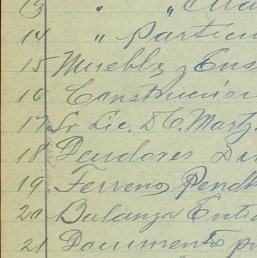 13 " "
14 " Particu
15 Muebles y Ens
16 Construcción
17 Sr. Lic. D. C. Martz.
18 Deudores Di
19 Terreno Pendi
20 Balanza Entra
21 Documento po